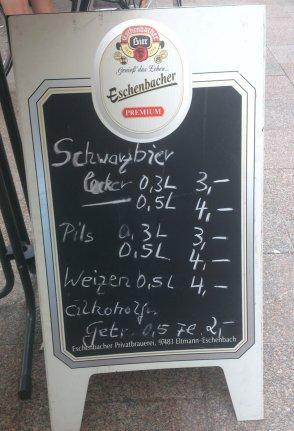 Eschenbacher
Bier
Genieß das Leben...
Eschenbacher
PREMIUM
Schwarzbier
lecker 0,3L 3,-
0,5L 4,-
Pils 0,3L 3,-
0,5L 4,-
Weizen 0,5L 4,-
Alkoholfr.
Getr. 0,5 je 2,-
Eschenbacher Privatbrauerei, 97483 Eltmann-Eschenbach